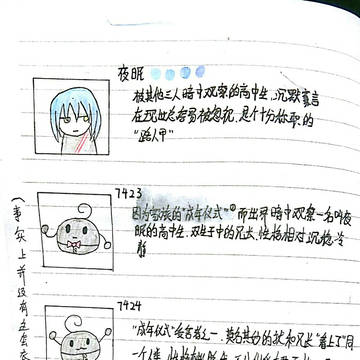 夜眠
被其他三人暗中观察的高中生,沉默寡言
在班出总容易被忽视,是个十分称职的
“路人甲”
7423
因为家族的“成年仪式”①而出界暗中观察一名叫夜
眠的高中生,双生子中的兄长,性格相对沉稳冷
静
7424
“成年仪式”受害者之一,莫名其妙的就和兄长“看上了”同
一个人
(事实上并没有这套衣